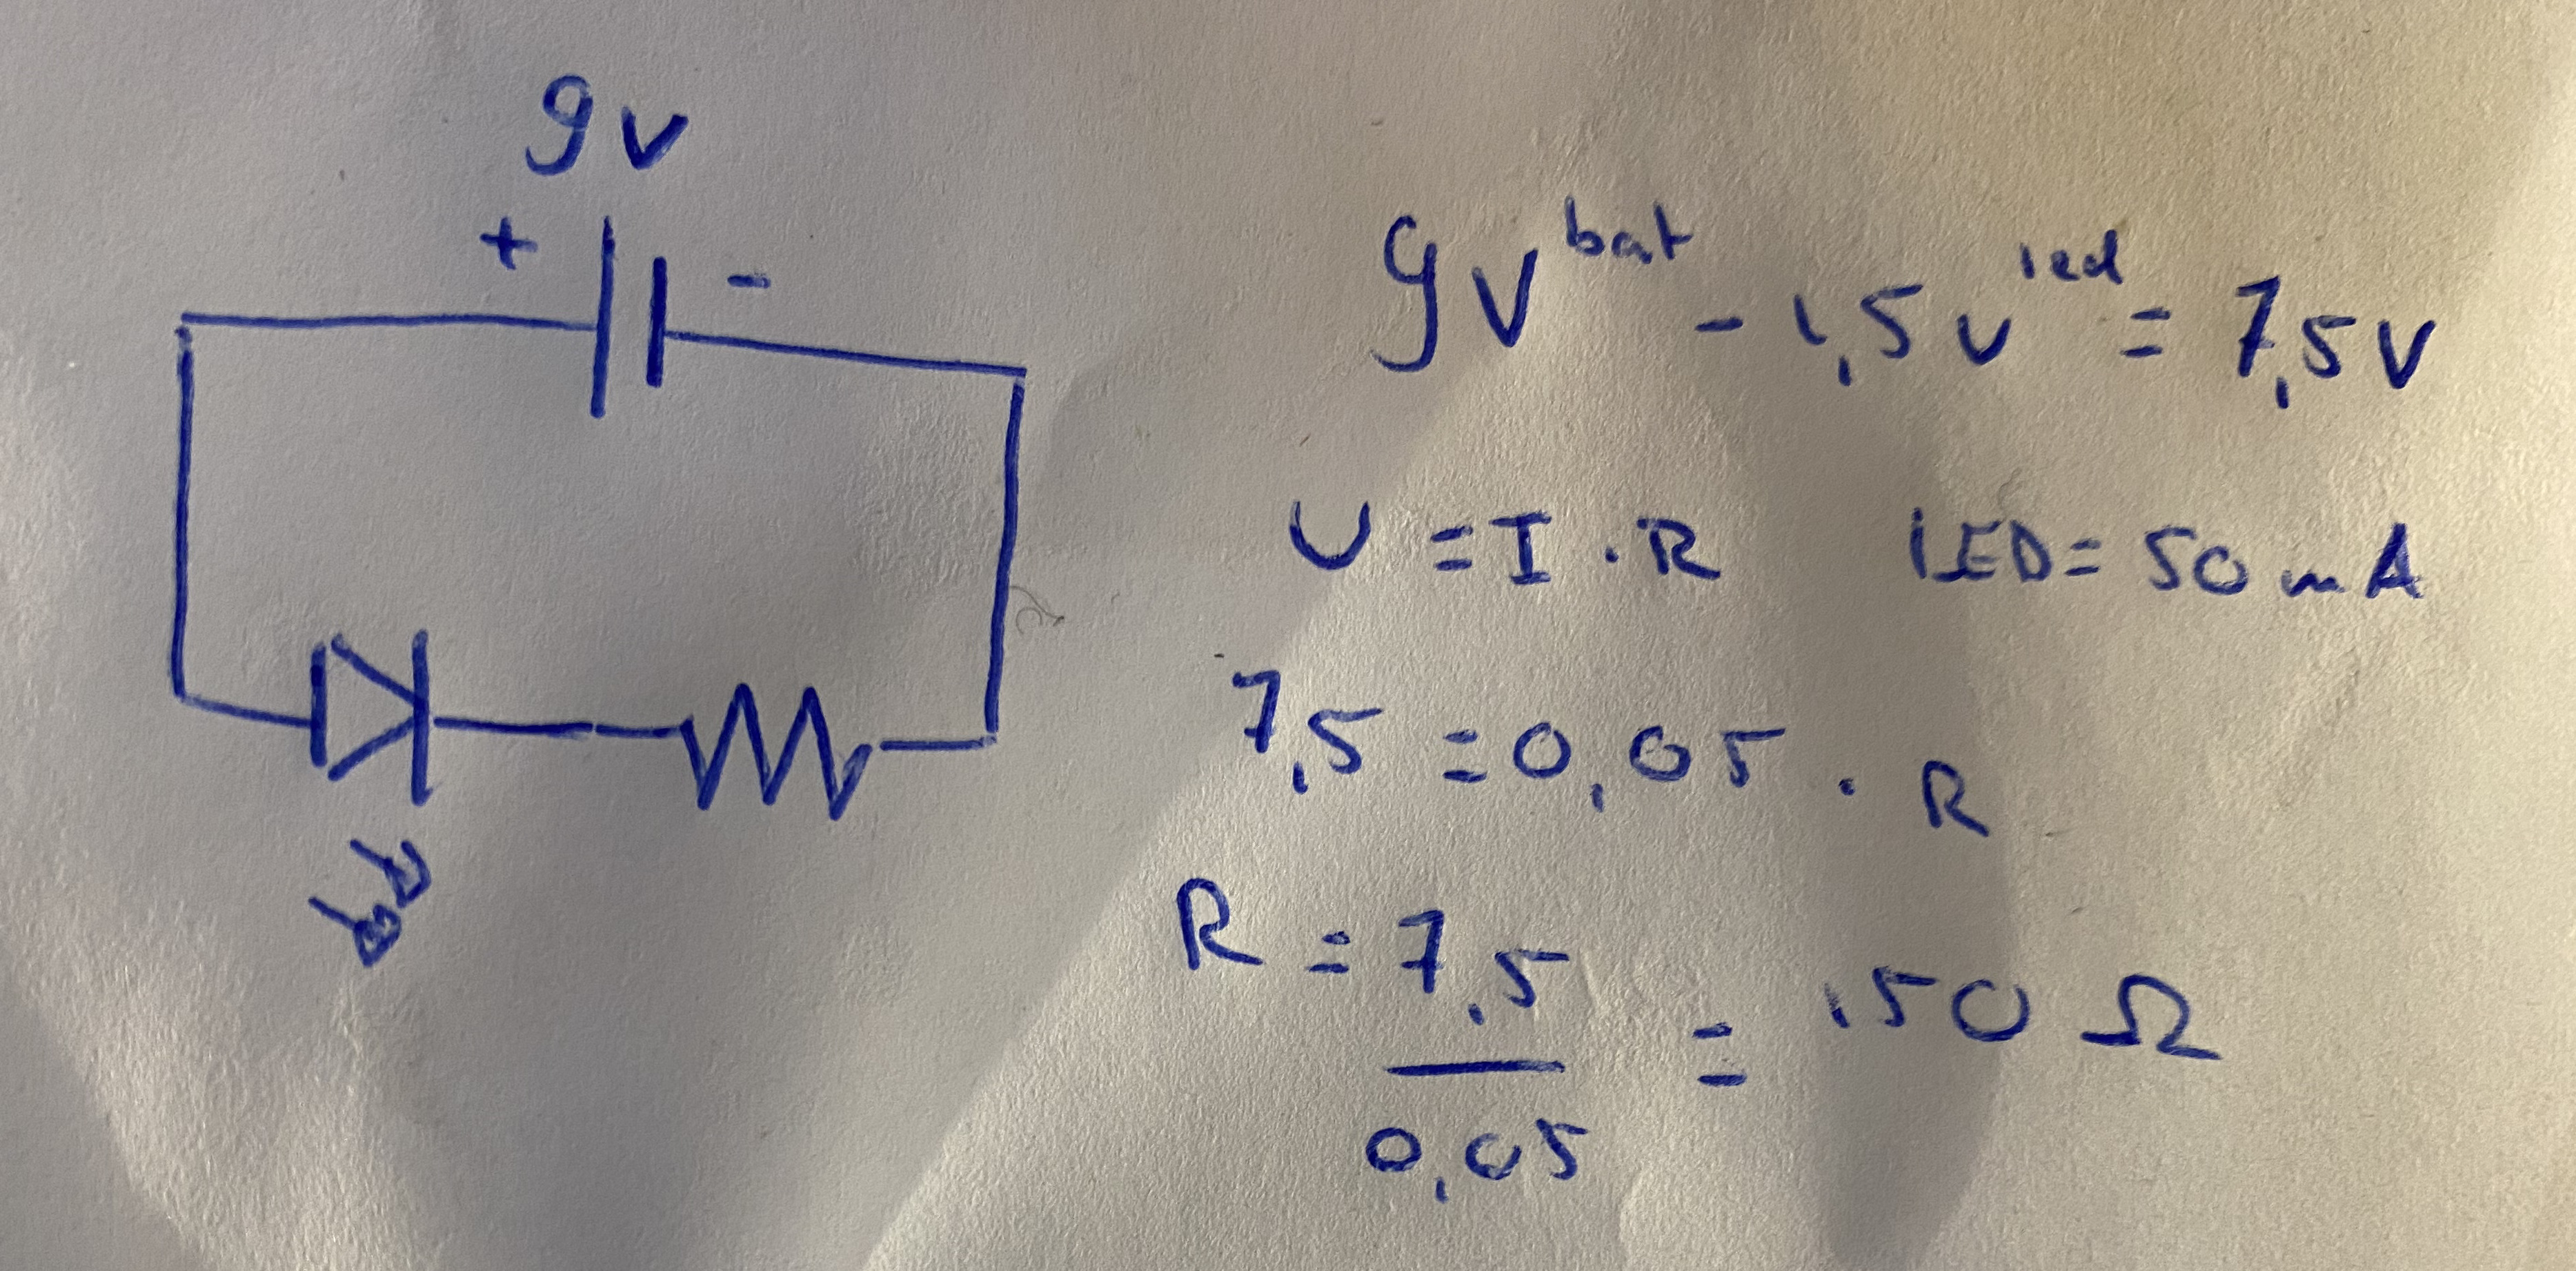 9v
+ -
9v bat - 1,5v led = 7,5v
U = I . R LED = 50mA
7,5 = 0,05 . R
R = 7,5 = 150 Ω
0,05